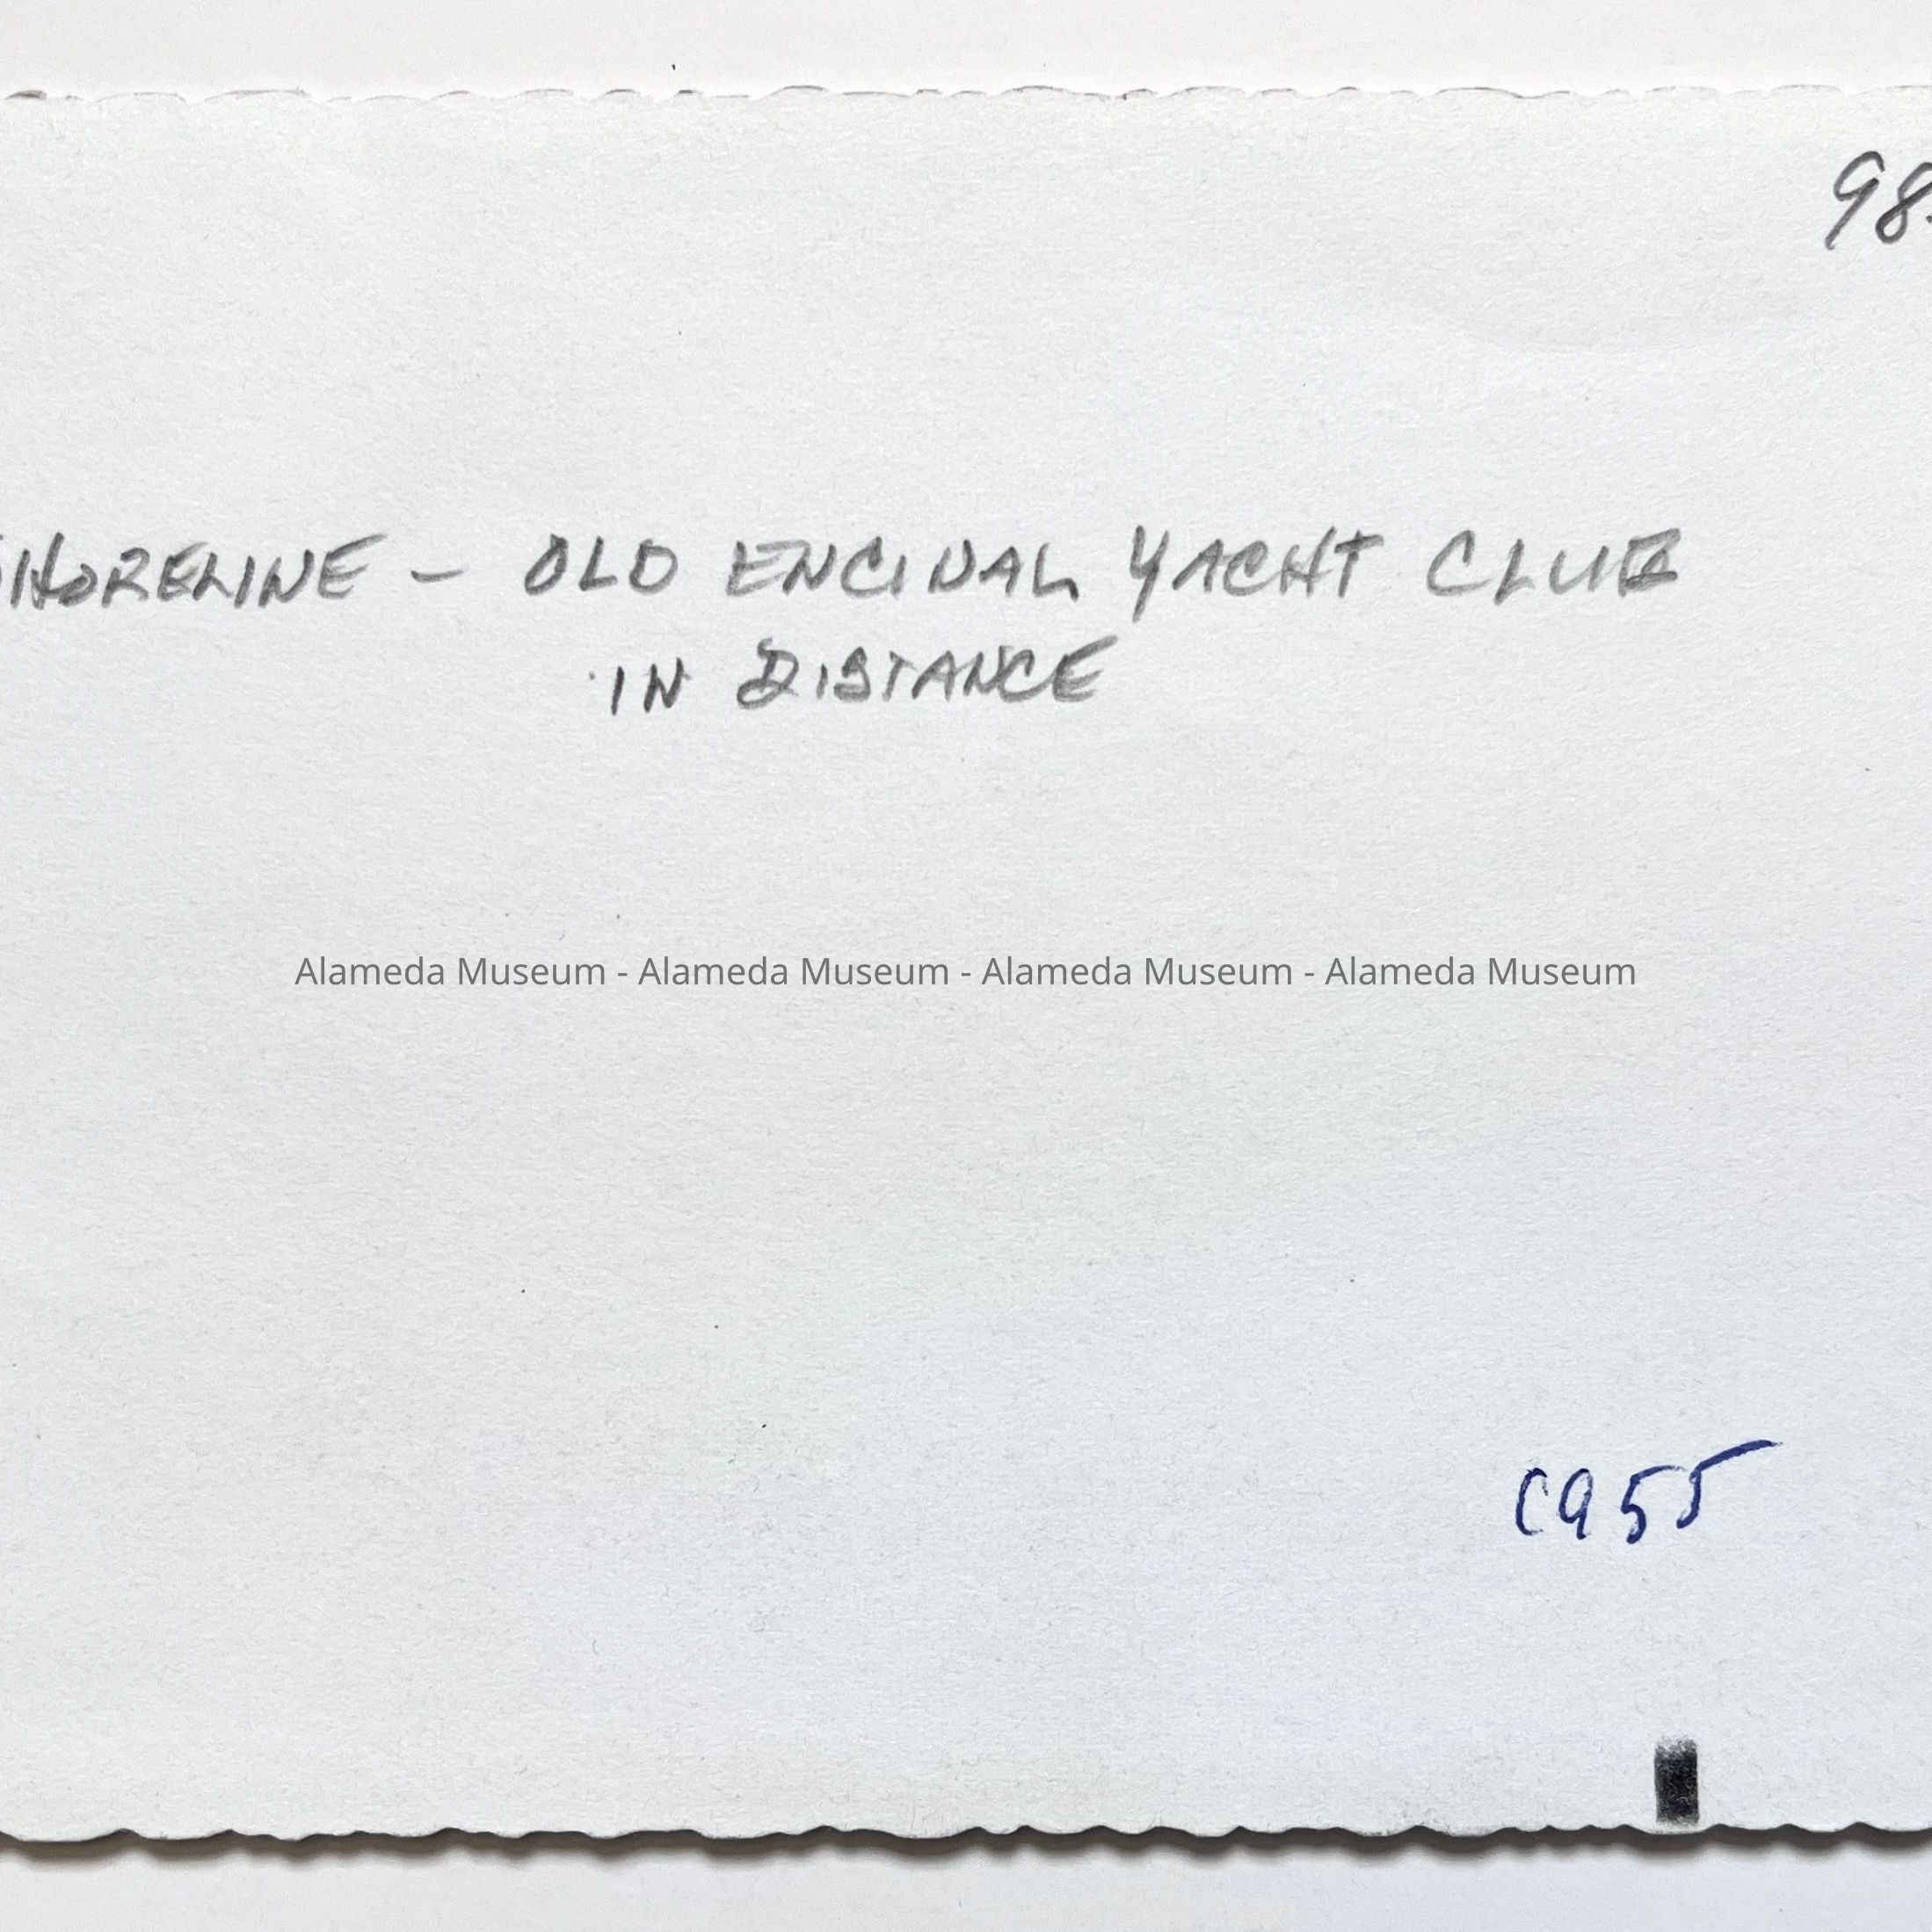 98.
SHORELINE – OLD ENCINAL YACHT CLUB
IN DISTANCE
Alameda Museum - Alameda Museum - Alameda Museum - Alameda Museum
C955